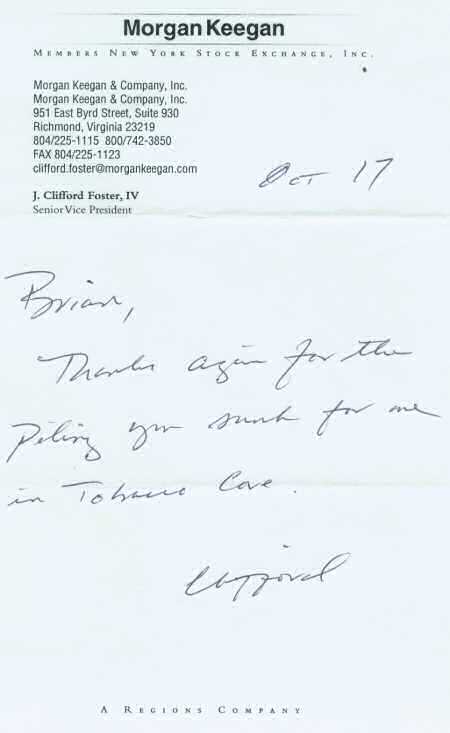 Morgan Keegan
MEMBERS NEW YORK STOCK EXCHANGE, INC.
Morgan Keegan & Company, Inc.
Morgan Keegan & Company, Inc.
951 East Byrd Street, Suite 930
Richmond, Virginia 23219
804/225-1115 800/742-3850
FAX 804/225-1123
clifford.foster@morgankeegan.com
Oct 17
J. Clifford Foster, IV
Senior Vice President
Brian,
Thanks again for the
Piling you sunk for me
in Tobacco Cove.
Clifford
A REGIONS COMPANY